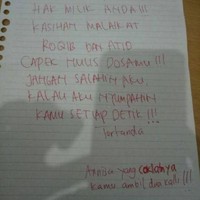 HAK MILIK ANDA!!!
KASIHAN MALAIKAT
ROQIB DAN ATID
CAPEK NULIS DOSAMU!!!
JANGAN SALAHIN AKU,
KALAU AKU NYUMPAHIN
KAMU SETIAP DETIK!!!
Tertanda
Annisa yang coklatnya
kamu ambil dan kalo!!!